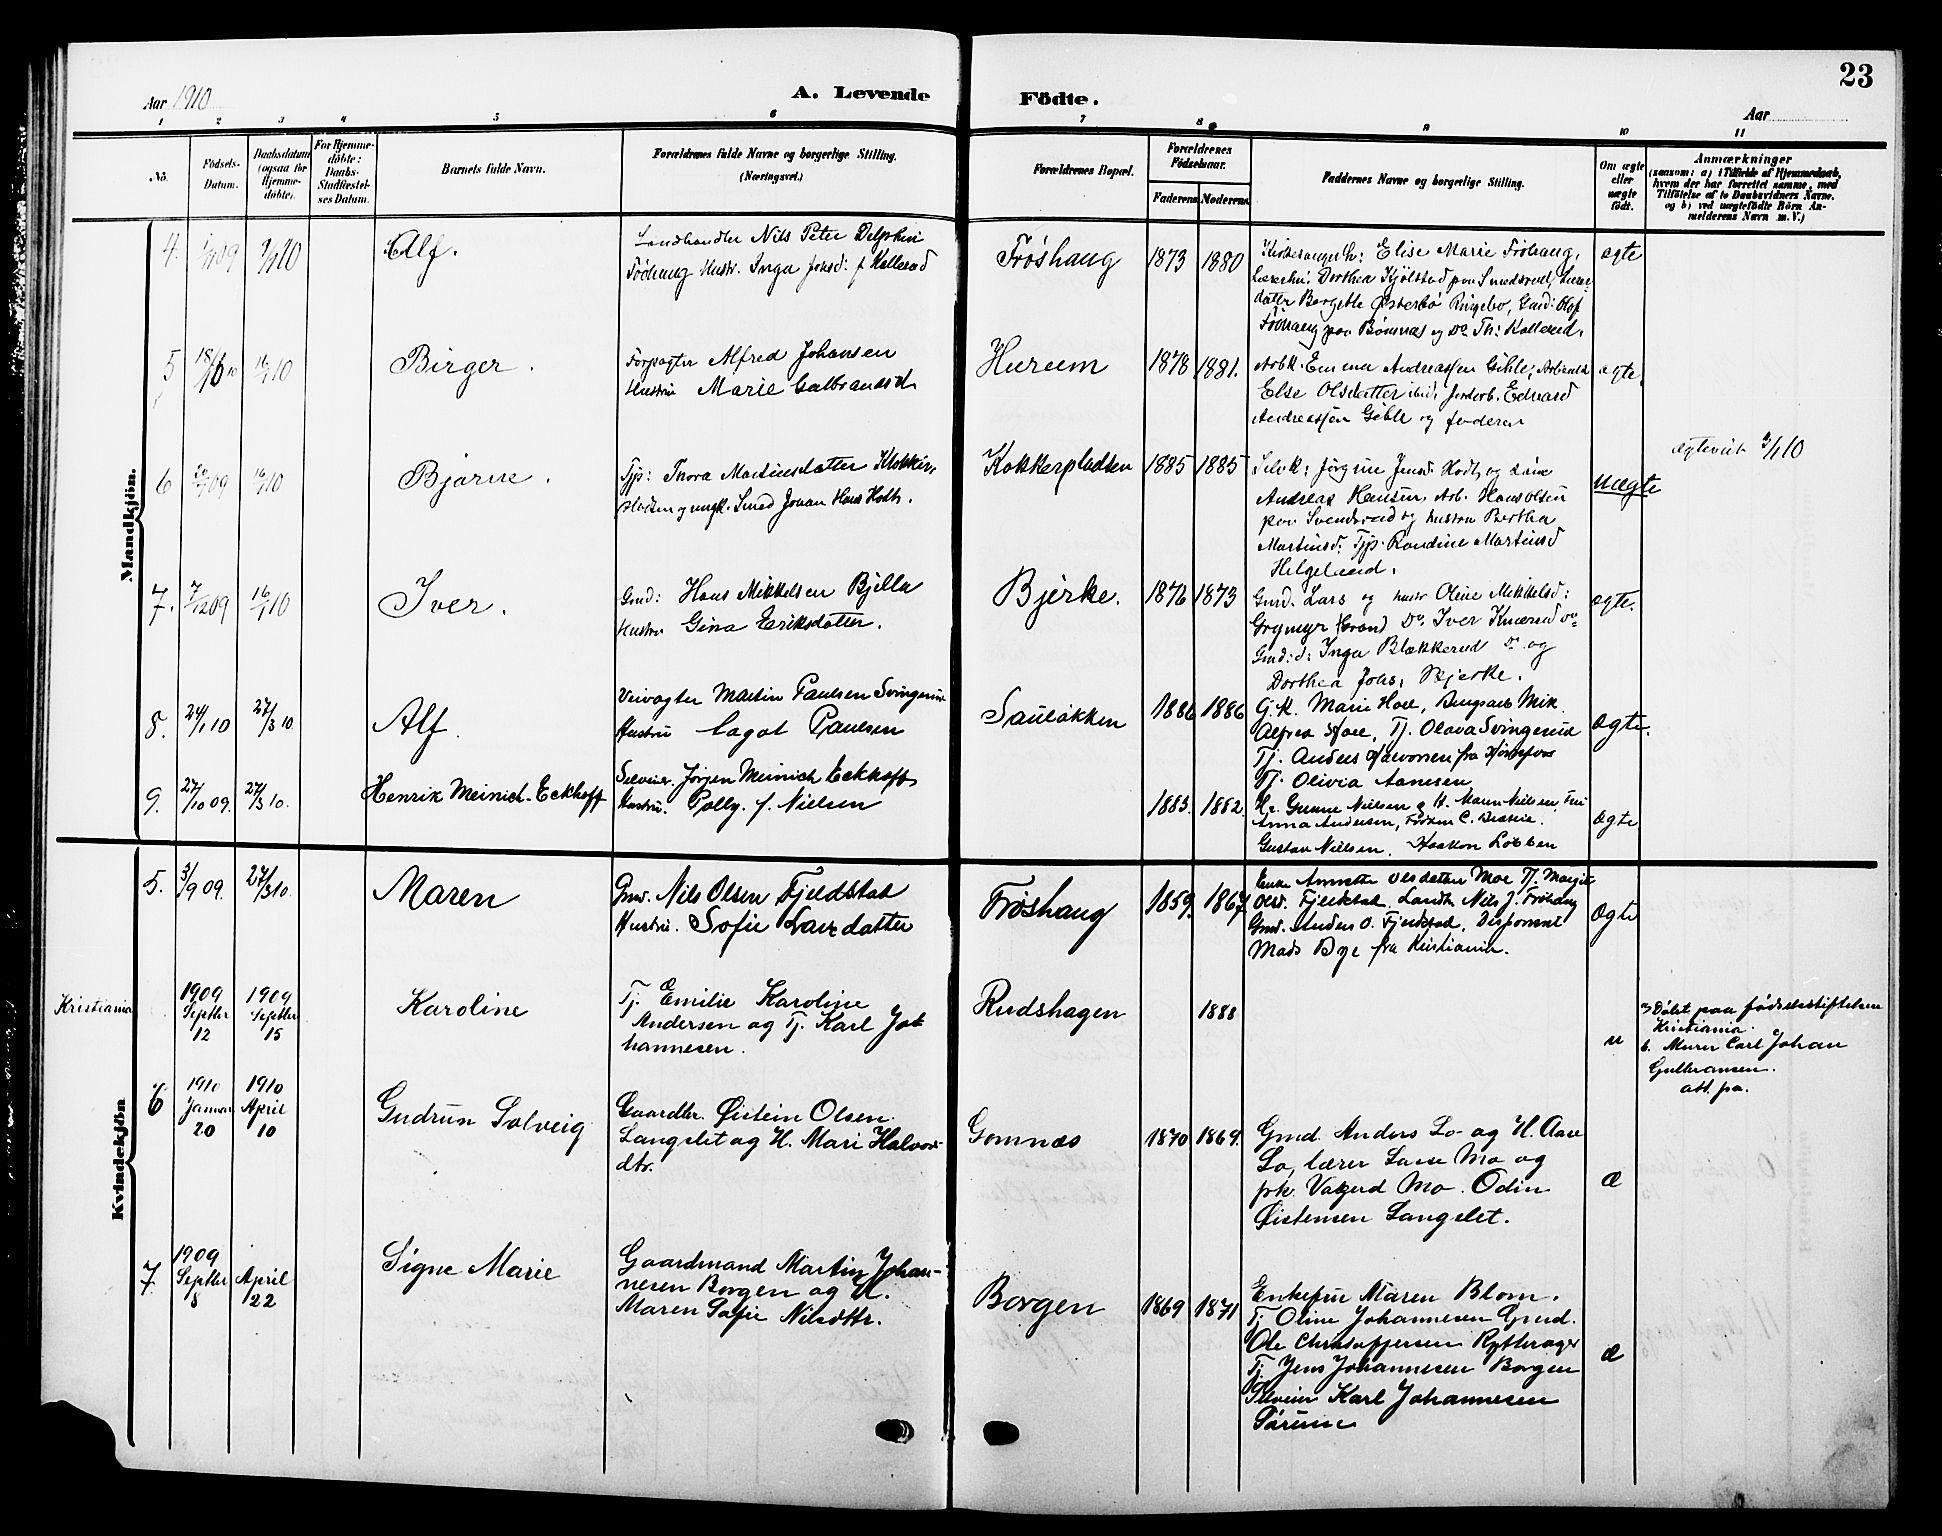 23
Aar 1910
A. Levende Födte.
Aar
1 2 3 4 5 6 7 8 9 10 11
No.
Födsels-
Datum.
Daabsdatum
(ogsaa for
Hjemme-
döbte).
For Hjemme-
döbte:
Daabs-
Stadfæstel-
ses Datum.
Barnets fulde Navn.
Forældrenes fulde Navne og borgerlige Stilling.
(Næringsvei.)
Forældrenes Bopæl.
Forældrenes
Födselsaar.
Faderens Moderens
Faddernes Navne og borgerlige Stilling.
Om ægte
eller
uægte
født.
Anmærkninger
(saasom: a) i Tilfælde af Hjemmedaab,
hvem der har forrettet samme, med
Tilföielse af to Daabsvidners Navne.
og b) ved uægtefödte Börn An-
melderens Navn m. V.)
Mandkjön.
4.
Alf.
Landhandler Nils Peter Delphin
Fröhaug Hustr. Inga Johsd: f Kollerud
Frøshaug
1873 1880
Elise Marie Fröhaug,
Dorthea Kjölstad paa
Borgethe Østerbö Ringebo, Gmd: Olaf
Fröhaug paa Bömnæs og Do Th: Kollerud.
ægte
5
18/6 10
16/1 10
Birger.
Forpagter Alfred Johansen
Hustru Marie Gulbrandsd
Hurum
1878 1881.
Arbk. Emma Andreassen Gihle, Arbeidsk
Else Olsdatter ibid, Jordarb. Edvard
Andreassen Gihle og faderen
ægte
6
16/1 10
Bjarne.
Tjp: Thora Martinsdatter Klokker-
Hodsen og ungk. Smed Johan Hans. Hodt.
Kokkerpladsen
1885 1885
Selvk: Jørgine Jensd. Hodt, og
Andreas Hansen, Arb. Hans Olsen
paa Svendsrud og hustru Bertha
Martinsd. Tjp. Randine Martinsd
Helgeland.
uægte
ægteviet 3/1 10
7.
7/12 09
16/1 10
Iver.
Gmd: Hans Mikkelsen Bjella
Hustru Gina Eriksdatter.
Bjerke.
1876 1873
Gmd. Lars og hustr Oline Mikkelsd:
Grymyr (Gran) Do. Iver Knærud do
Gmd:d: Inga Blækkerud Do. og
Dorthea Johs, Bjerke.
ægte.
8.
24/1 10
27/3 10
Alf.
Veivogter Martin Paulsen Svingerud
Hustru Lagot Paulsen
Sauløkken
1886 1886
G.k. Marie Hoel, Brugsarb Mik.
Alfred Hoel, Tj. Olava Svingerud
Tj. Anders Halvorsen fra Hønefos
Tj. Olivia Aanesen
ægte.
9.
27/10 09.
27/3 10.
Henrik Meinich-Eckhoff
Selveier. Jørgen Meinich Eckhoff
Hustru. Polly. f. Nielsen
1883. 1882.
Hr. Gunne Nielsen & H. Maren Nielsen, Fru
Anna Andersen, Frøken C. Beskie.
Gustav Nielsen. Haakon Lobben
Ægte
Kvindekjön
5.
3/9 09.
27/3 10.
Maren
Gmd. Nils Olsen Fjeldstad
Hustru. Sofie Larsdatter
Frøshaug
1859. 1867.
Enke Annette Olsdatter Moe Tj. Margit
Olsd. Fjeldstad. Landh. Nils J. Fröhaug
Gmd. Anders O. Fjeldstad, Disponent
Mads Bye fra Kristiania.
Ægte
Kristiania
1909
Septbr
12
1909
Septbr
15
Karoline
Tj. Emilie Karoline
Andersen og Tj. Karl Jo-
hannesen.
Rudshagen
1888
u
Döbt paa födselsstiftelsen
Kristiania.
b. Murer Carl Johan
Gulbransen.
att. fra.
6
1910
Januar
20
1910
April
10
Gudrun Solveig
Gaardbr. Øistein Olsen
Langslet og H. Mari Halvors-
dtr.
Gomnæs
1870 1869.
Gmd. Anders Lo og H. Aase
Lo, lærer Lars Mo og
frk. Valgerd Mo. Odin
Øistensen Langslet.
Æ
7.
1909
Septbr
8
April
22
Signe Marie
Gaardmand Martin Johan-
nesen Borgen og H.
Maren Sofie Nilsdtr.
Borgen
1869 1871
Enkefru Maren Blom.
T. Oline Johannesen Gmd.
Ole Christoffersen Rytterager
Tj. Jens Johannesen Borgen
Selveier Karl Johannesen
Sørum
Æ